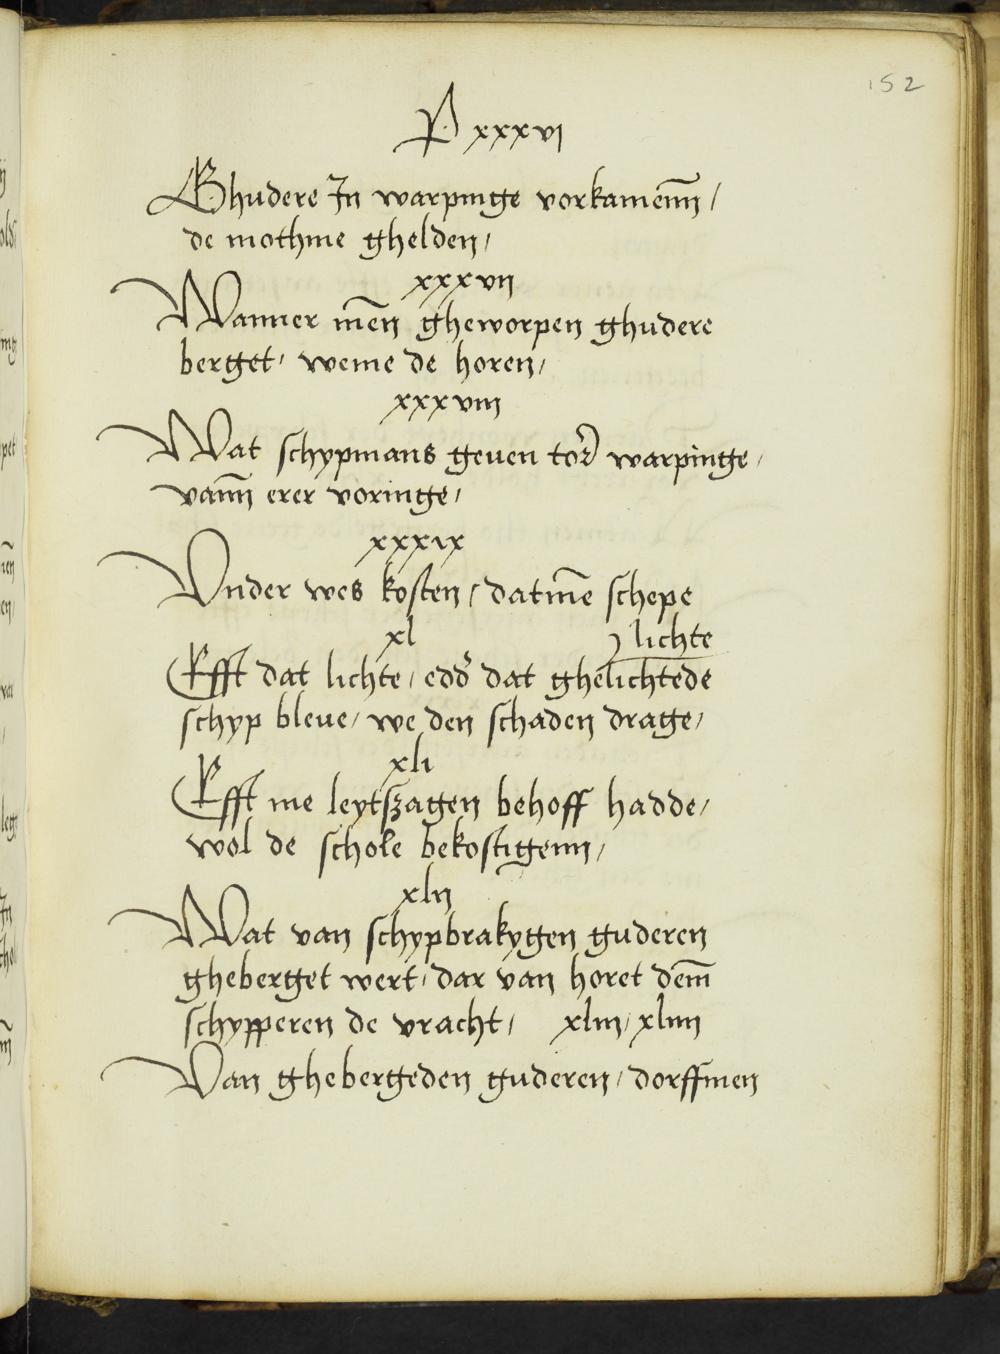 152
P xxxvi
Ghudere In warpinge vorkamēnn/
de mothme ghelden/
xxxvii
Wanner mēn gheworpen ghudere
berget/ weme de horen/
xxxviii
Wat schypmans geven tor̄ warpinge/
vānn erer voringe/
xxxix
Under wes kosten/ datmē schepe
lichte
xl
Efft dat lichte/ edd' dat ghelichtede
schyp bleve/ we den schaden drage/
xli
Efft me leytszagen behoff hadde/
wol de schole bekostigenn/
xlii
Wat van schypbrakygen guderen
gheberget wert/ dar van horet dēm
schypperen de vracht/ xliii/ xliiii
Van ghebergeden guderen/ dorffmen